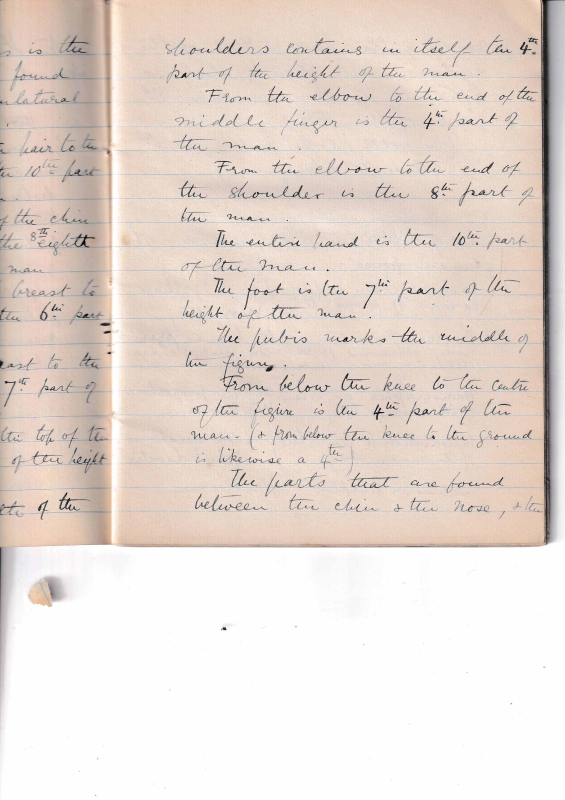 s is the
found
natural
hair to the
the 10th part
of the chin
the 8th eighth
man
breast to
the 6th part
east to the
7th part of
the top of the
of the height
of the
shoulders contains in itself the 4th
part of the height of the man.
From the elbow to the end of the
middle finger is the 4th part of
the man.
From the elbow to the end of
the shoulder is the 8th part of
the man.
The entire hand is the 10th part
of the man.
The foot is the 7th part of the
height of the man.
The pubis marks the middle of
the figure.
From below the knee to the centre
of the figure is the 4th part of the
man - (& from below the knee to the ground
is likewise a 4th)
The parts that are found
between the chin & the nose, & the